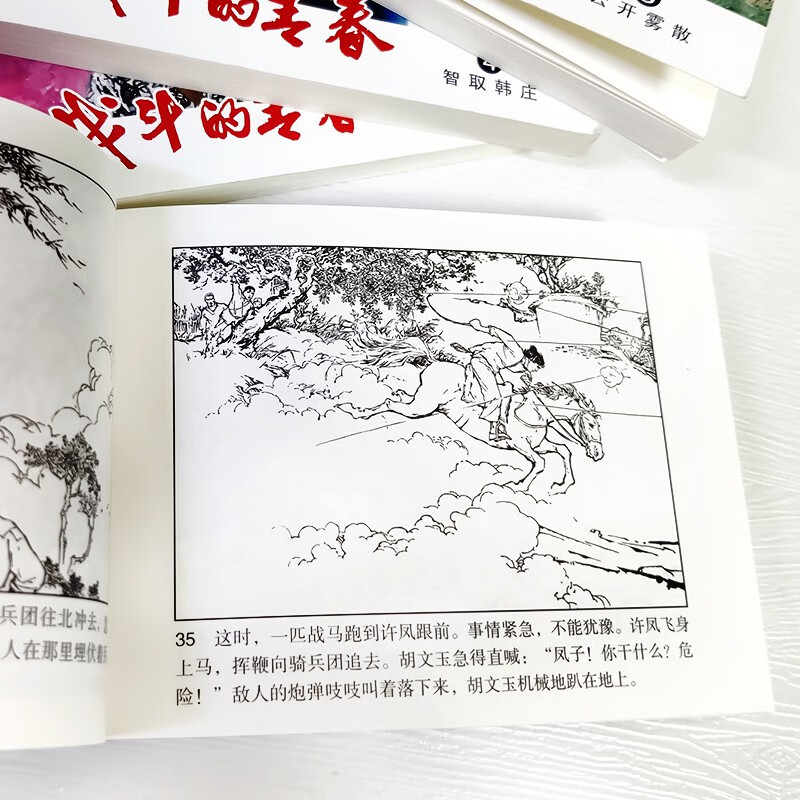 的青春
云开雾散
4
智取韩庄
战斗的青春
兵团往北冲去，
人在那里埋伏着
35 这时，一匹战马跑到许凤跟前。事情紧急，不能犹豫。许凤飞身
上马，挥鞭向骑兵团追去。胡文玉急得直喊：“凤子！你干什么？危
险！”敌人的炮弹吱吱叫着落下来，胡文玉机械地趴在地上。